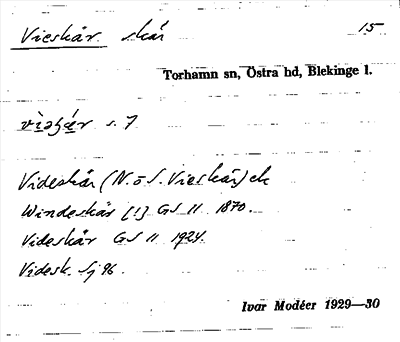 Vieskär. skär 15
Torhamn sn, Östra hd, Blekinge l.
s. 7
Videskär (N. o S. Vieskär) ek
Windeskär [!] GS 11 1870.
Videskär GS 11 1924.
Videsk. Sj 96.
Ivar Modéer 1929—30